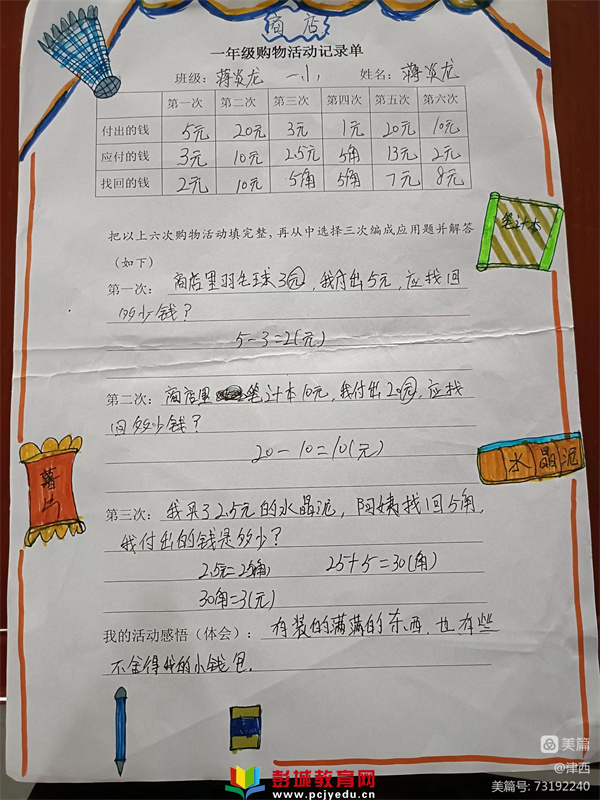 商店
一年级购物活动记录单
班级: 蒋炎龙 一小 姓名: 蒋炎龙
第一次 第二次 第三次 第四次 第五次 第六次
付出的钱 5元 20元 3元 1元 20元 10元
应付的钱 3元 10元 2.5元 5角 13元 2元
找回的钱 2元 10元 5角 5角 7元 8元
把以上六次购物活动填完整,再从中选择三次编成应用题并解答
(如下)
笔计本
第一次: 商店里羽毛球3元,我付出5元,应找回
多少钱?
5-3=2(元)
第二次: 商店里笔计本10元,我付出20元,应找
回多少钱?
20-10=10(元)
水晶泥
薯片
第三次: 我买了2.5元的水晶泥,阿姨找回5角,
我付出的钱是多少?
2.5元=25角 25+5=30(角)
30角=3(元)
我的活动感悟(体会): 有装的满满的东西,也有些
不舍得我的小钱包.
美篇
@津西
美篇号: 73192240
彭城教育网
www.pcjyedu.cn